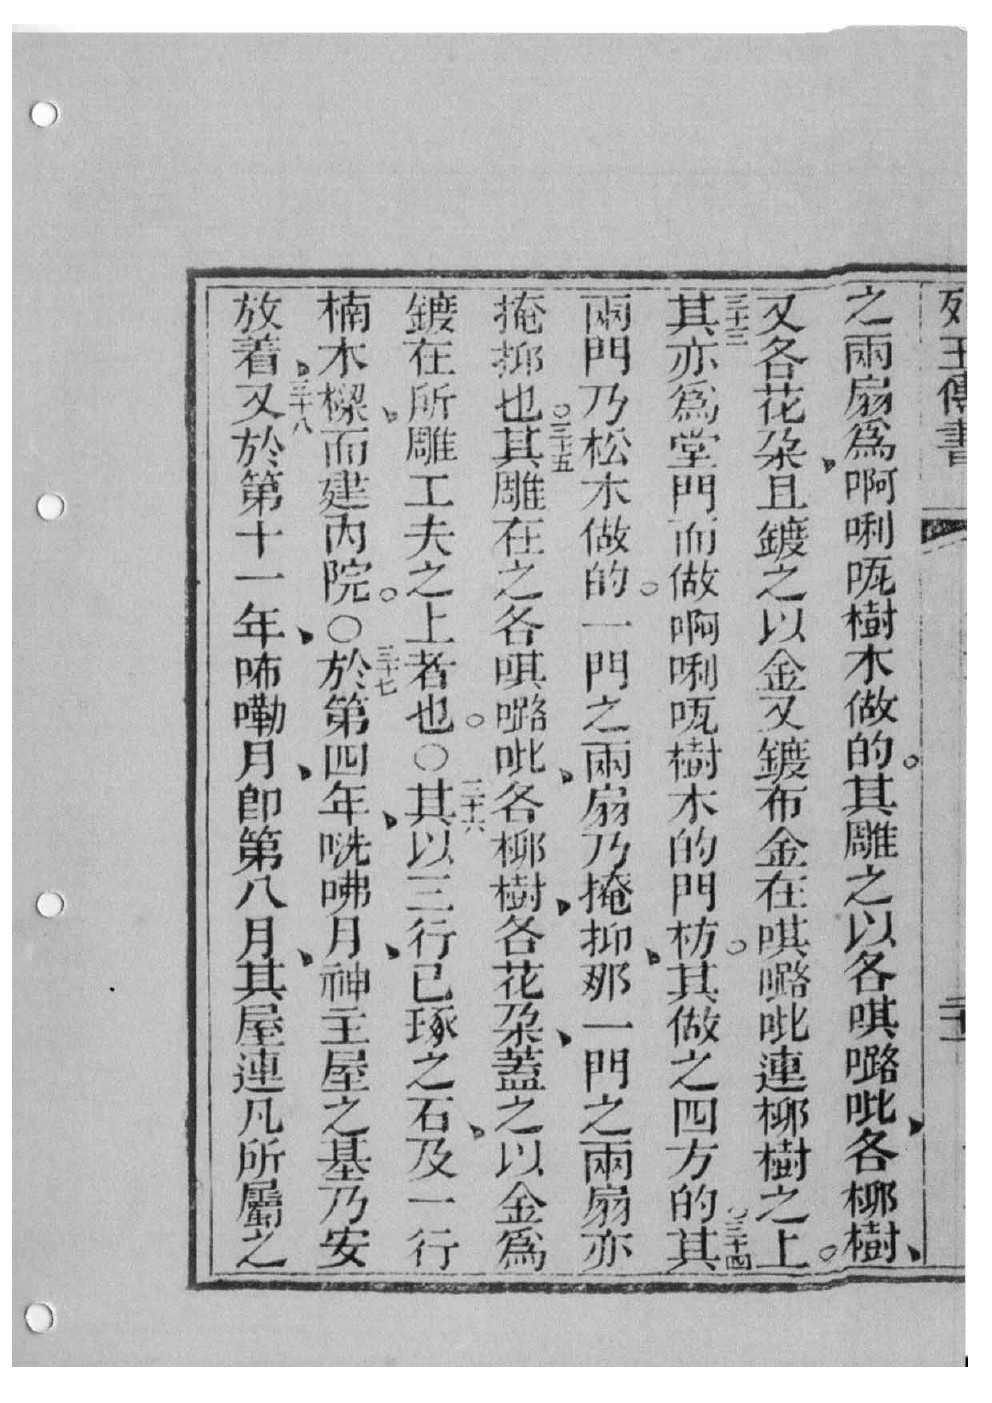 列王傳書 二十一
之兩扇爲啊唎㕹樹木做的。其雕之以各唭嚕吡、各柳樹、
又各花朶、且鍍之以金又鍍布金在唭嚕吡連柳樹之上。
三十三其亦爲堂門而做啊唎㕹樹木的門枋。其做之四方的。三十四其
兩門乃松木做的。一門之兩扇乃掩抑、那一門之兩扇亦
掩抑也。○三十五其雕在之各唭嚕吡、各柳樹、各花朶、蓋之以金爲
鍍在、所雕工夫之上者也。○三十六其以三行已琢之石、及一行
楠木樑、而建內院。○三十七於第四年、咣咈月、神主屋之基乃安
放着、三十八又於第十一年、㗑嘞月、卽第八月、其屋連凡所屬之